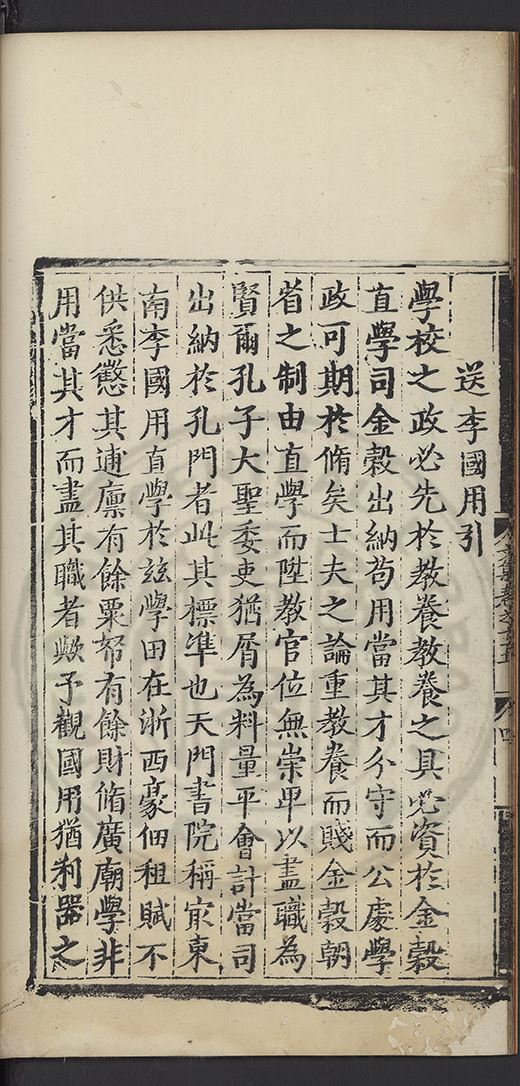 送李國用引
學校之政必先於教養教養之具必資於金穀
直學司金穀出納苟用當其才分守而公處學
政可期於脩矣士夫之論重教養而賤金穀朝
省之制由直學而陞教官位無崇卑以盡職為
賢爾孔子大聖委吏猶屑為料量平會計當司
出納於孔門者此其標準也天門書院稱㝡東
南李國用直學於兹學田在浙西豪佃租賦不
供悉懲其逋廪有餘粟帑有餘財脩廣廟學非
用當其才而盡其職者歟予觀國用猶利器之